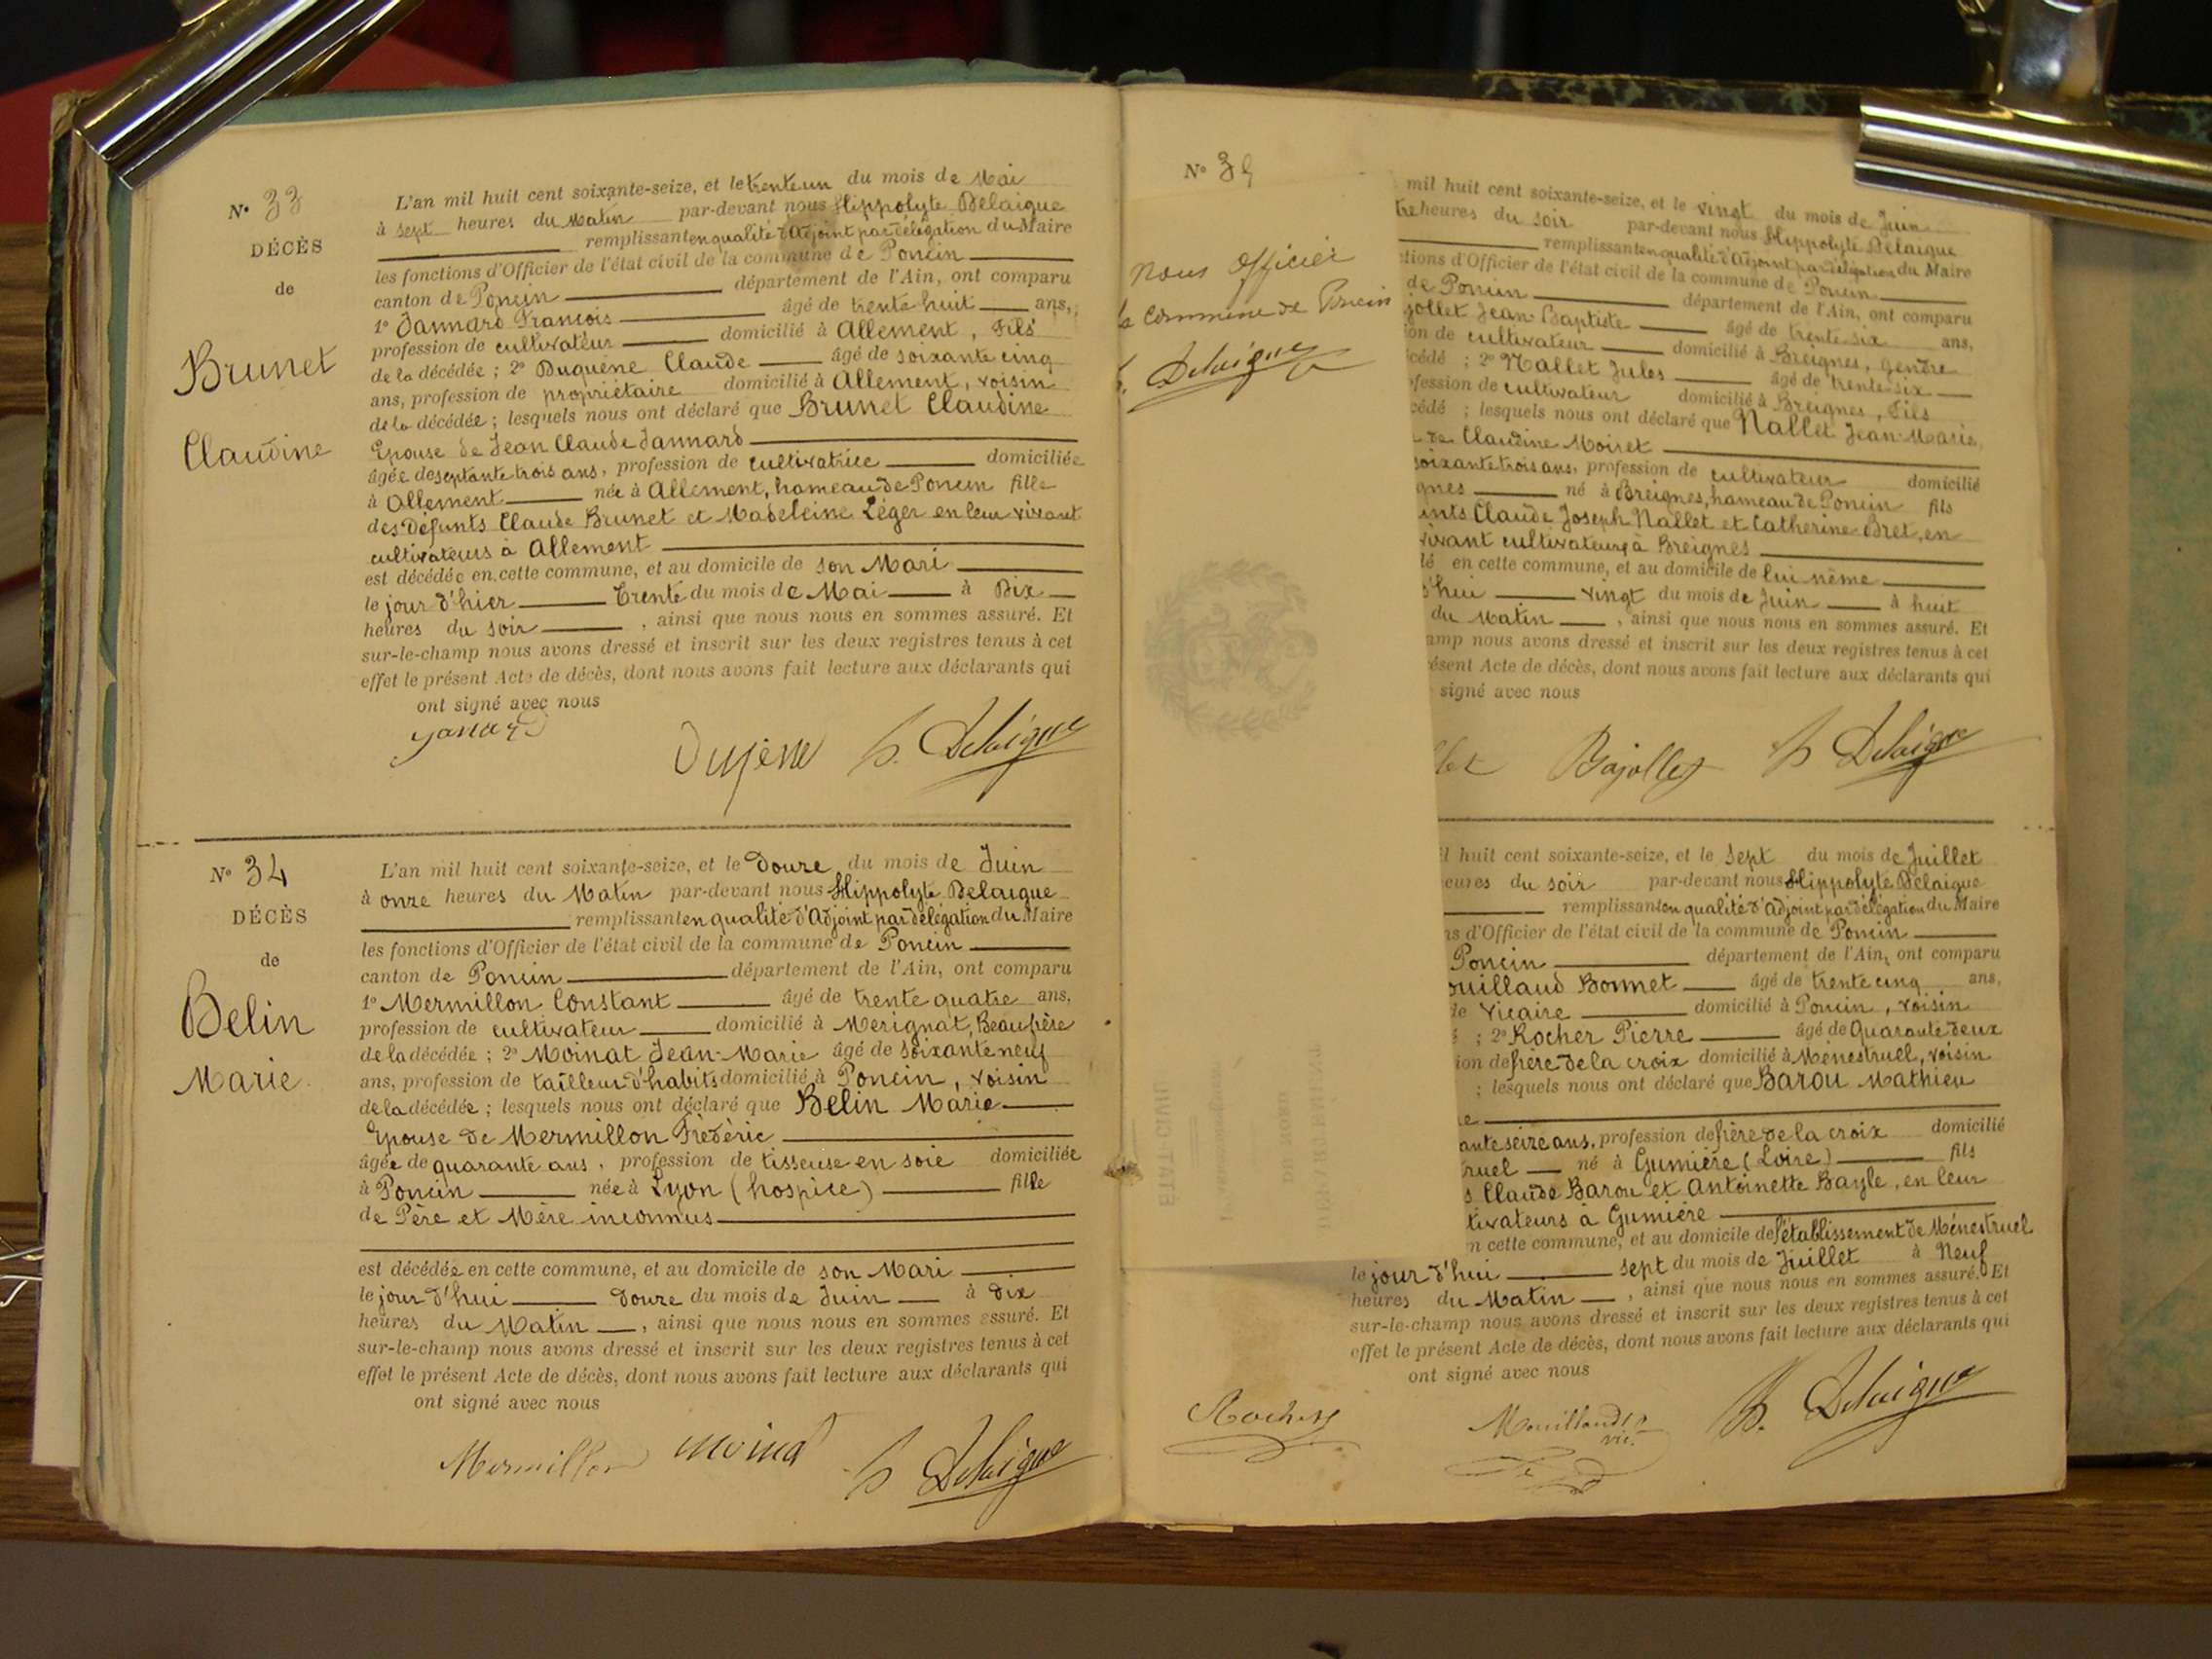 N° 33
DÉCÈS
de
Brunet
Claudine
L'an mil huit cent soixante-seize, et le trente un du mois de Mai
à sept heures du Matin par-devant nous Hippolyte Delaigue
remplissant en qualité d'Adjoint par délégation du Maire
les fonctions d'Officier de l'état civil de la commune de Poncin
canton de Poncin département de l'Ain, ont comparu
1° Jannard François âgé de trente huit ans,
profession de cultivateur domicilié à Allement, Fils
de la décédée ; 2° Duquène Claude âgé de soixante cinq
ans, profession de propriétaire domicilié à Allement, voisin
de la décédée ; lesquels nous ont déclaré que Brunet Claudine
Epouse de Jean Claude Jannard
âgée de septante trois ans, profession de cultivatrice domiciliée
à Allement née à Allement, hameau de Poncin fille
des Défunts Claude Brunet et Madeleine Léger en leur vivant
cultivateurs à Allement
est décédée en cette commune, et au domicile de son Mari
le jour d'hier Trente du mois de Mai à Dix
heures du soir , ainsi que nous nous en sommes assuré. Et
sur-le-champ nous avons dressé et inscrit sur les deux registres tenus à cet
effet le présent Acte de décès, dont nous avons fait lecture aux déclarants qui
ont signé avec nous
H. Delaigue
N° 34
DÉCÈS
de
Belin
Marie.
L'an mil huit cent soixante-seize, et le Douze du mois de Juin
à onze heures du Matin par-devant nous Hippolyte Delaigue
remplissant en qualité d'Adjoint par délégation du Maire
les fonctions d'Officier de l'état civil de la commune de Poncin
canton de Poncin département de l'Ain, ont comparu
1° Mermillon Constant âgé de trente quatre ans,
profession de cultivateur domicilié à Mérignat, Beau frère
de la décédée ; 2° Moinat Jean-Marie âgé de soixante neuf
ans, profession de tailleur d'habits domicilié à Poncin, voisin
de la décédée ; lesquels nous ont déclaré que Belin Marie
Epouse de Mermillon Frédéric
âgée de quarante ans, profession de tisseuse en soie domiciliée
à Poncin née à Lyon (hospice) fille
de Père et Mère inconnus
est décédée en cette commune, et au domicile de son Mari
le jour d'hui Douze du mois de Juin à Dix
heures du Matin , ainsi que nous nous en sommes assuré. Et
sur-le-champ nous avons dressé et inscrit sur les deux registres tenus à cet
effet le présent Acte de décès, dont nous avons fait lecture aux déclarants qui
ont signé avec nous
Mermillon Moinat H. Delaigue
N° 35
nous officier
la commune de Poncin
H. Delaigue
mil huit cent soixante-seize, et le vingt du mois de Juin
heures du soir par-devant nous Hippolyte Delaigue
remplissant en qualité d'Adjoint par délégation du Maire
tions d'Officier de l'état civil de la commune de Poncin
de Poncin département de l'Ain, ont comparu
jollet Jean-Baptiste âgé de trente six ans,
ion de cultivateur domicilié à Breignes, gendre
cédé ; 2° Nallet Jules âgé de trente-six
fession de cultivateur domicilié à Breignes, Fils
cédé ; lesquels nous ont déclaré que Nallet Jean-Marie,
de Claudine Moiret
soixante trois ans, profession de cultivateur domicilié
gnes né à Breignes, hameau de Poncin fils
unts Claude Joseph Nallet et Catherine Bret, en
vivant cultivateurs à Breignes
dé en cette commune, et au domicile de lui même
d'hui vingt du mois de Juin à huit
du Matin , ainsi que nous nous en sommes assuré. Et
amp nous avons dressé et inscrit sur les deux registres tenus à cet
résent Acte de décès, dont nous avons fait lecture aux déclarants qui
signé avec nous
let Bajollet H Delaigue
il huit cent soixante-seize, et le sept du mois de Juillet
eures du soir par-devant nous Hippolyte Delaigue
remplissant en qualité d'Adjoint par délégation du Maire
ns d'Officier de l'état civil de la commune de Poncin
Poncin département de l'Ain, ont comparu
ouillaud Bonnet âgé de trente cinq ans,
de Vicaire domicilié à Poncin, voisin
; 2° Rocher Pierre âgé de Quarante deux
ion de frère de la croix domicilié à Ménestruel, voisin
; lesquels nous ont déclaré que Barou Mathieu
ante seize ans, profession de frère de la croix domicilié
ruel né à Gumière (Loire) fils
s Claude Barou et Antoinette Bayle, en leur
tivateurs à Gumière
n cette commune, et au domicile de l'établissement de Ménestruel
le jour d'hui sept du mois de Juillet à Neuf
heures du Matin , ainsi que nous nous en sommes assuré. Et
sur-le-champ nous avons dressé et inscrit sur les deux registres tenus à cet
effet le présent Acte de décès, dont nous avons fait lecture aux déclarants qui
ont signé avec nous
Rocher Mouillaud vic. H. Delaigue